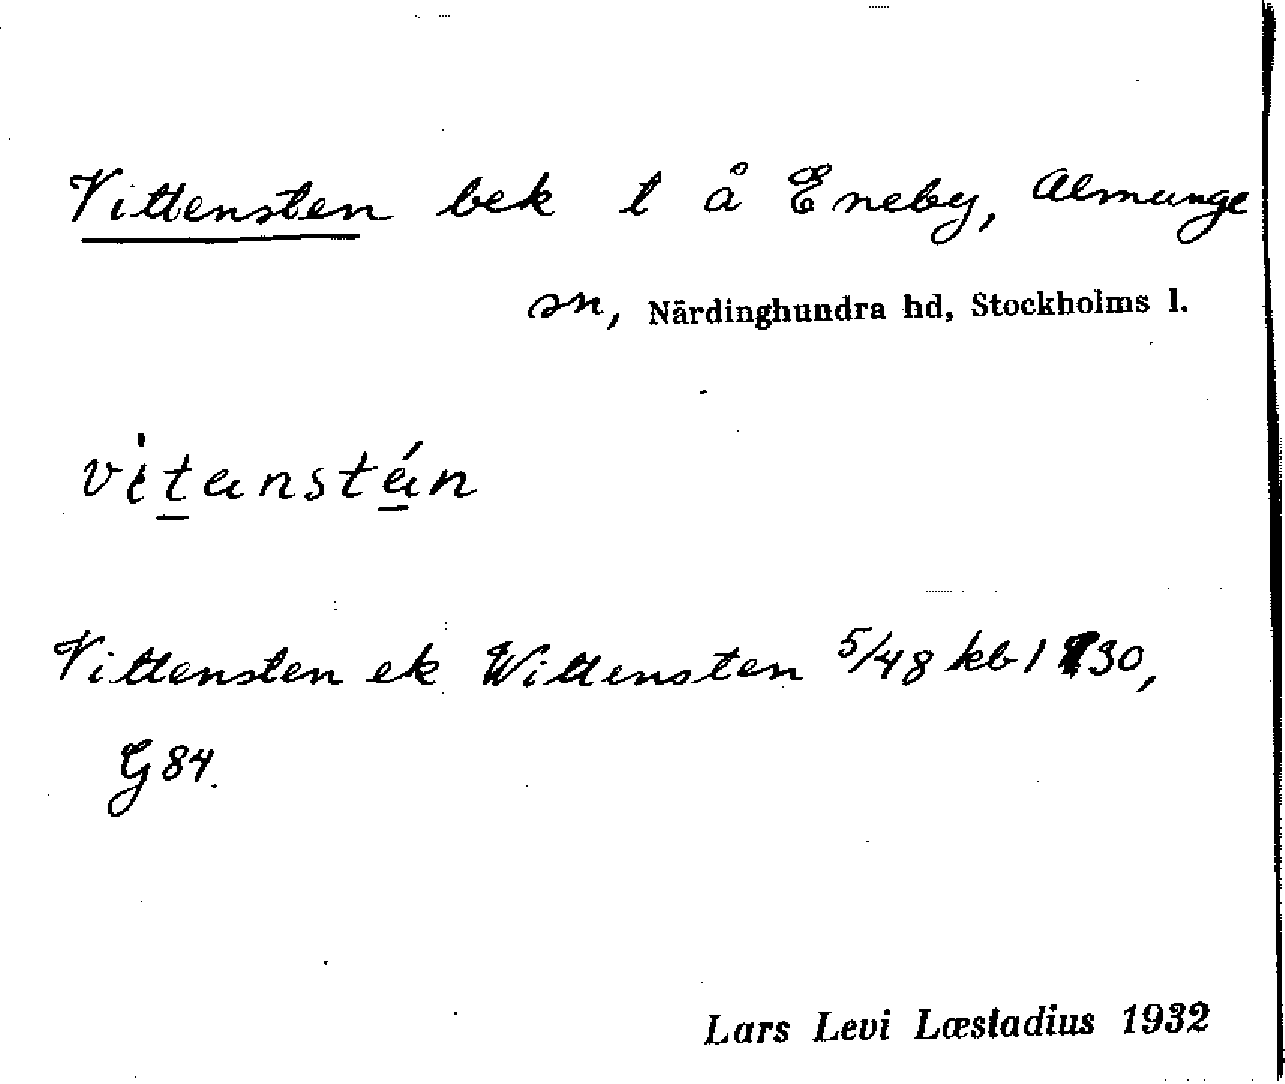 Vittensten bek t å Eneby, Almunge
sn, Närdinghundra hd, Stockholms l.
vìtanstán
Vittensten ek Wittensten 5/48 kb 1930,
G 84.
Lars Levi Læstadius 1932